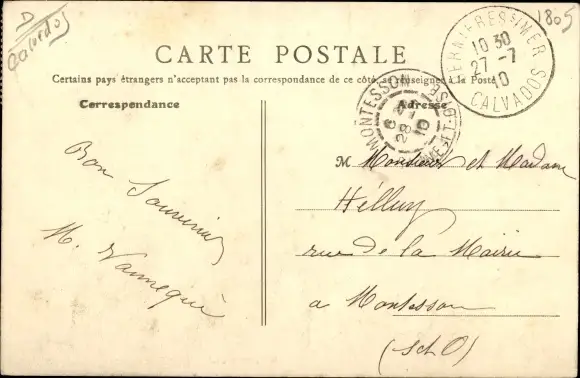 D
Calvados
1805
CARTE POSTALE
Certains pays étrangers n'acceptant pas la correspondance de ce côté, se renseigner à la Poste
Correspondance
Adresse
BERNIERES S MER
10 30
27 - 7
10
CALVADOS
MONTESSON
28
10
ET-OISE
Bon Souvenir
M.
M. Monsieur et Madame
rue de la Mairie
a Montesson
(S et O)